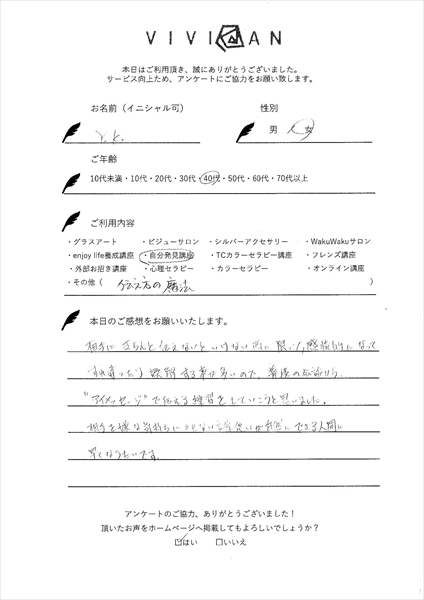 VIVIAN
本日はご利用頂き、誠にありがとうございました。
サービス向上ため、アンケートにご協力をお願い致します。
お名前（イニシャル可） 性別
Y.K. 男 ・ 女
ご年齢
10代未満・10代・20代・30代・40代・50代・60代・70代以上
ご利用内容
・グラスアート ・ビジューサロン ・シルバーアクセサリー ・WakuWakuサロン
・enjoy life養成講座 ・自分発見講座 ・TCカラーセラピー講座 ・フレンズ講座
・外部お招き講座 ・心理セラピー ・カラーセラピー ・オンライン講座
・その他（ 伝え方の魔法 ）
本日のご感想をお願いいたします。
相手にきちんと伝えないといけない時に限り、感情的になって
すれ違ったり誤解する事が多いので、普段の会話から
"アイメッセージ"で伝える練習をしていこうと思いました。
相手を嫌な気持ちにさせない言葉使いが自然にできる人間に
早くなりたいです。
アンケートのご協力、ありがとうございました！
頂いたお声をホームページへ掲載してもよろしいでしょうか？
☑はい □いいえ